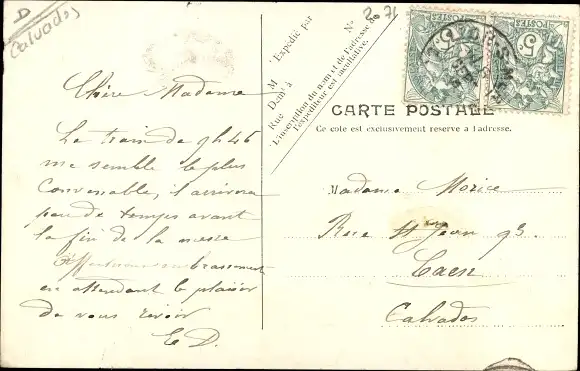 D
Calvados
Chère Madame
Le train de 9h46
me semble le plus
Convenable, il arrivera
peu de temps avant
la fin de la messe
Affectueux embrassements
en attendant le plaisir
de vous revoir
E D.
Expédié par
M
Dem^t à
Rue
N°
L'inscription du nom et de l'adresse de
l'expéditeur est facultative.
2 71
POSTES
5
POSTES
5
CARTE POSTALE
Ce cote est exclusivement reserve a l'adresse.
Madame Morice
Rue St Jean 93
Caen
Calvados